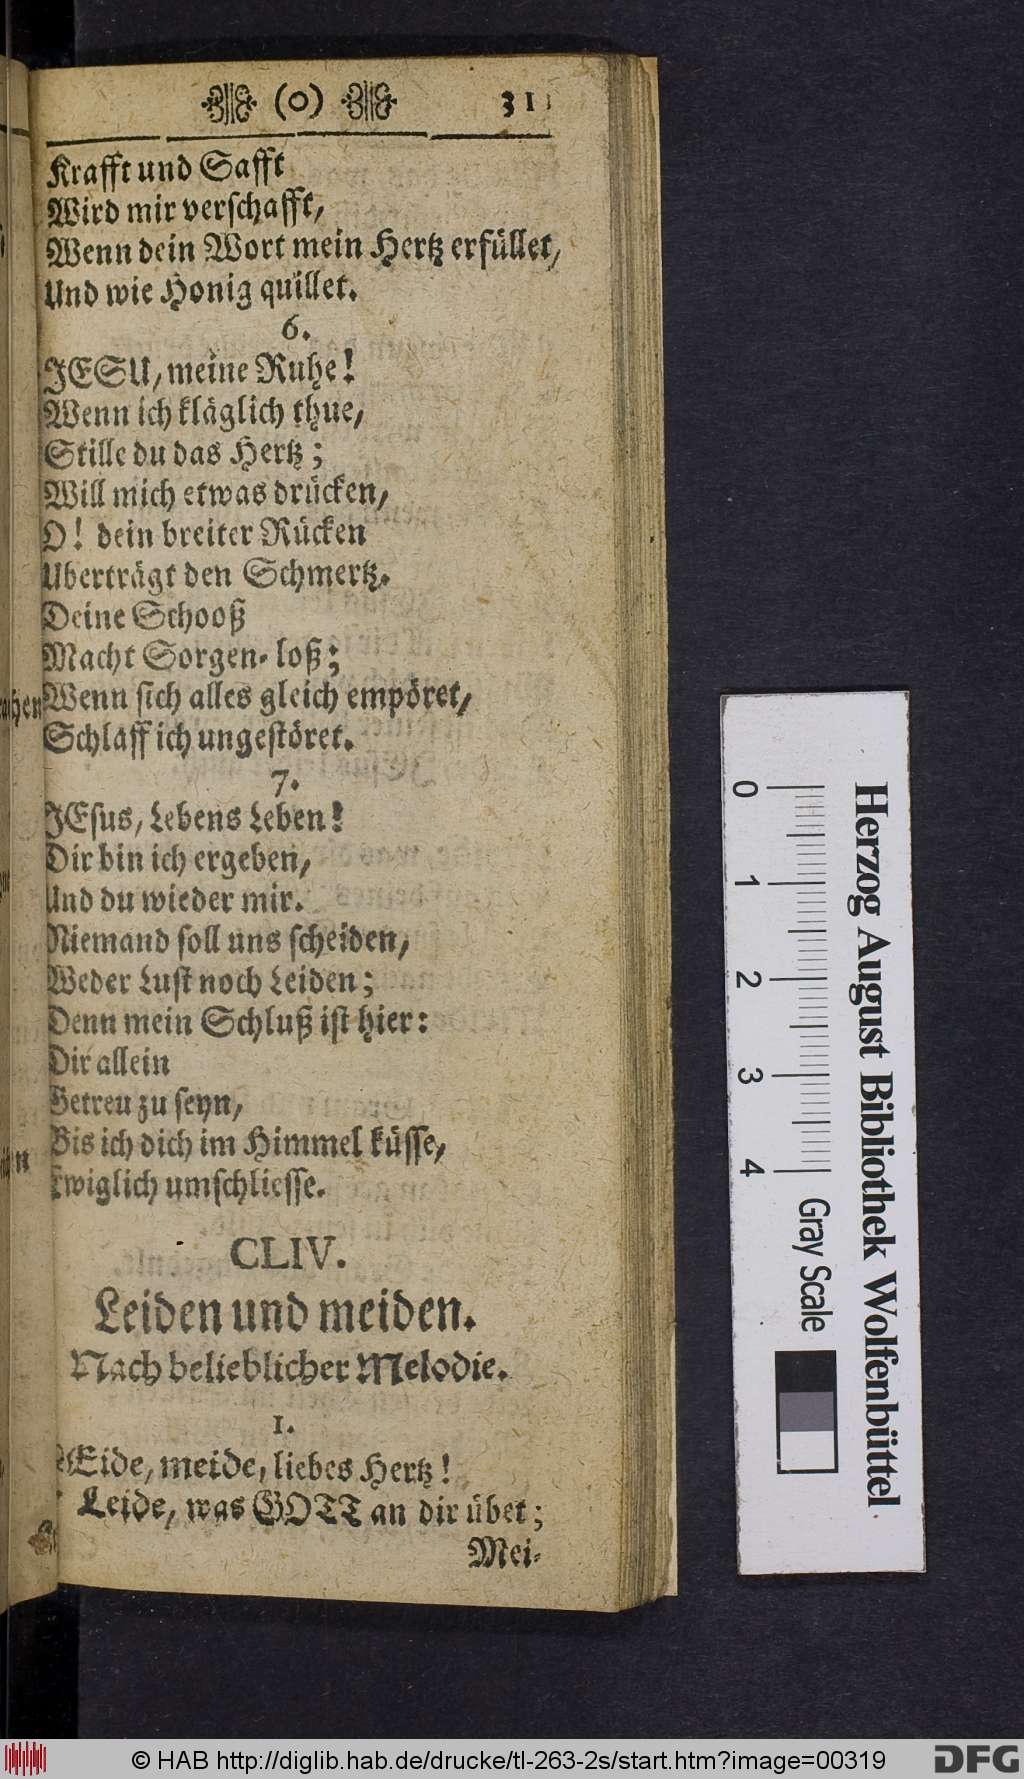 (o) 311
Krafft und Safft
Wird mir verſchafft,
Wenn dein Wort mein Hertz erfüllet,
Und wie Honig quillet.
6.
JESU, meine Ruhe!
Wenn ich kläglich thue,
Stille du das Hertz;
Will mich etwas drücken,
O! dein breiter Rücken
Uberträgt den Schmertz.
Deine Schooß
Macht Sorgen-loß;
Wenn ſich alles gleich empöret,
Schlaff ich ungeſtöret.
7.
JEſus, Lebens Leben!
Dir bin ich ergeben,
Und du wieder mir.
Niemand ſoll uns ſcheiden,
Weder Luſt noch Leiden;
Denn mein Schluß iſt hier:
Dir allein
Getreu zu ſeyn,
Bis ich dich im Himmel küſſe,
Ewiglich umſchlieſſe.
CLIV.
Leiden und meiden.
Nach belieblicher Melodie.
1.
LEide, meide, liebes Hertz!
Leide, was GOTT an dir übet;
Mei-
0 1 2 3 4
Gray Scale
Herzog August Bibliothek Wolfenbüttel
© HAB http://diglib.hab.de/drucke/tl-263-2s/start.htm?image=00319
DFG